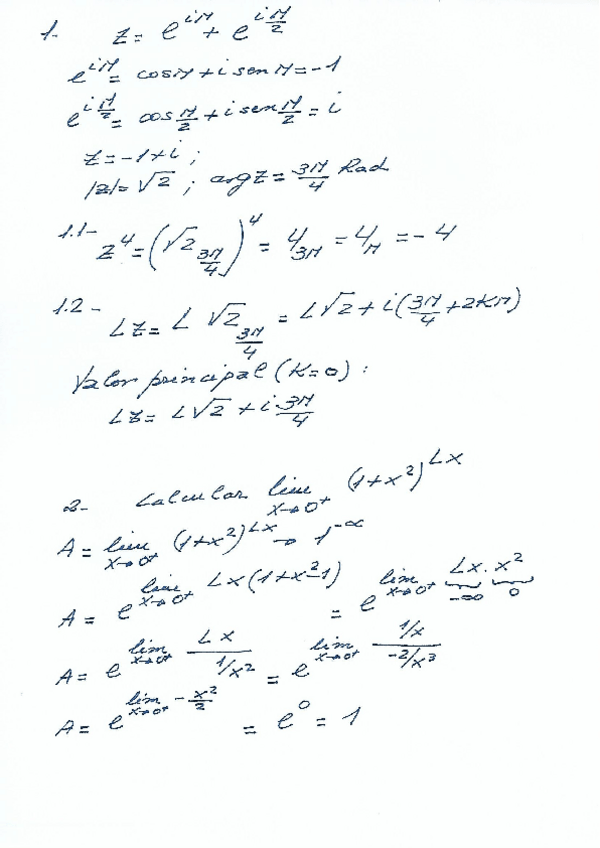 1- z = e^{iπ} + e^{iπ/2}
e^{iπ} = cosπ + i senπ = -1
e^{iπ/2} = cos π/2 + i sen π/2 = i
z = -1+i ;
|z| = √2 ; arg z = 3π/4 Rad
1.1- z^4 = (√2_{3π/4})^4 = 4_{3π} = 4_π = -4
1.2- Lz = L √2_{3π/4} = L√2 + i(3π/4 + 2Kπ)
Valor principal (K=0) :
Lz = L√2 + i 3π/4
2- Calcular lim_{x→0+} (1+x²)^{Lx}
A = lim_{x→0+} (1+x²)^{Lx} → 1^{-∞}
A = e^{lim_{x→0+} Lx(1+x²-1)} = e^{lim_{x→0+} Lx · x²} -∞ 0
A = e^{lim_{x→0+} Lx / (1/x²)} = e^{lim_{x→0+} (1/x) / (-2/x³)}
A = e^{lim_{x→0+} -x²/2} = e^0 = 1